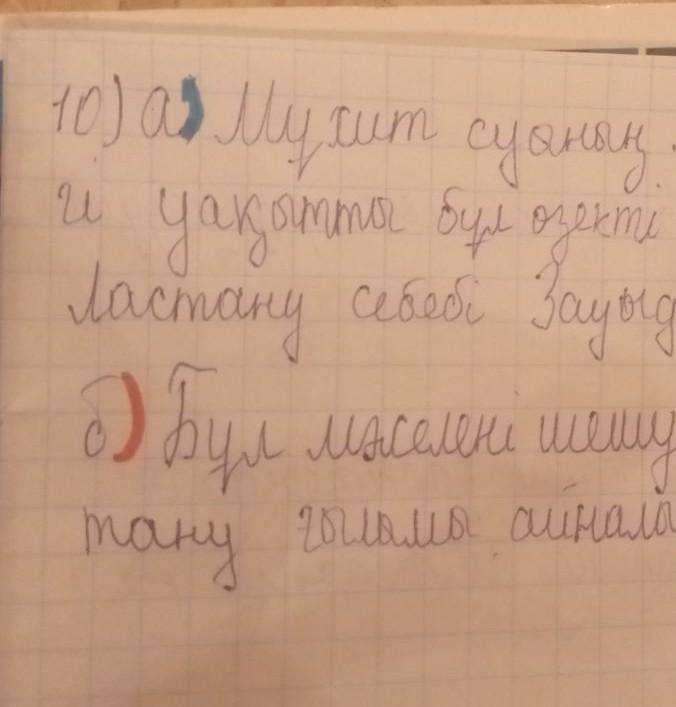 10) а) Мұхит суының
й уақытты бұл өзекті
Ластану себебі Зауыд
б) Бұл мәселені шешу
тану ғылымы айнала